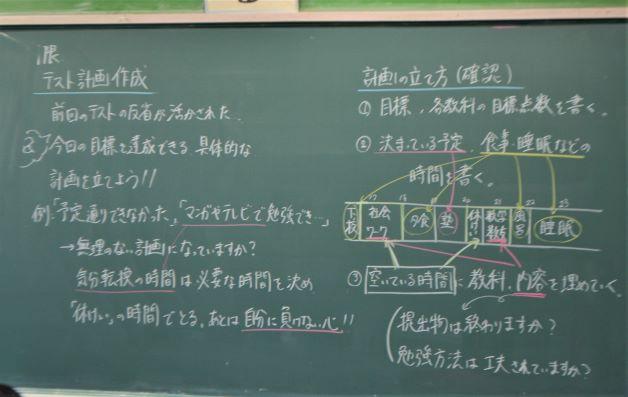 1限
テスト計画作成
前回のテストの反省が活かされた
今回の目標を達成できる具体的な
計画を立てよう!!
例.「予定通りできなかった」「マンガやテレビで勉強でき…」
→無理のない計画になっていますか?
気分転換の時間は必要な時間を決め
「休けい」の時間でとる。あとは自分に負けない心!!
計画の立て方(確認)
① 目標、各教科の目標点数を書く。
② 決まっている予定、食事・睡眠などの
時間を書く。
17 18 20 21 22 23
下校 社会ワーク 夕食 塾 休けい 数学 風呂 睡眠
③ 空いている時間に教科、内容を埋めていく。
提出物は終わりますか?
勉強方法は工夫されていますか?